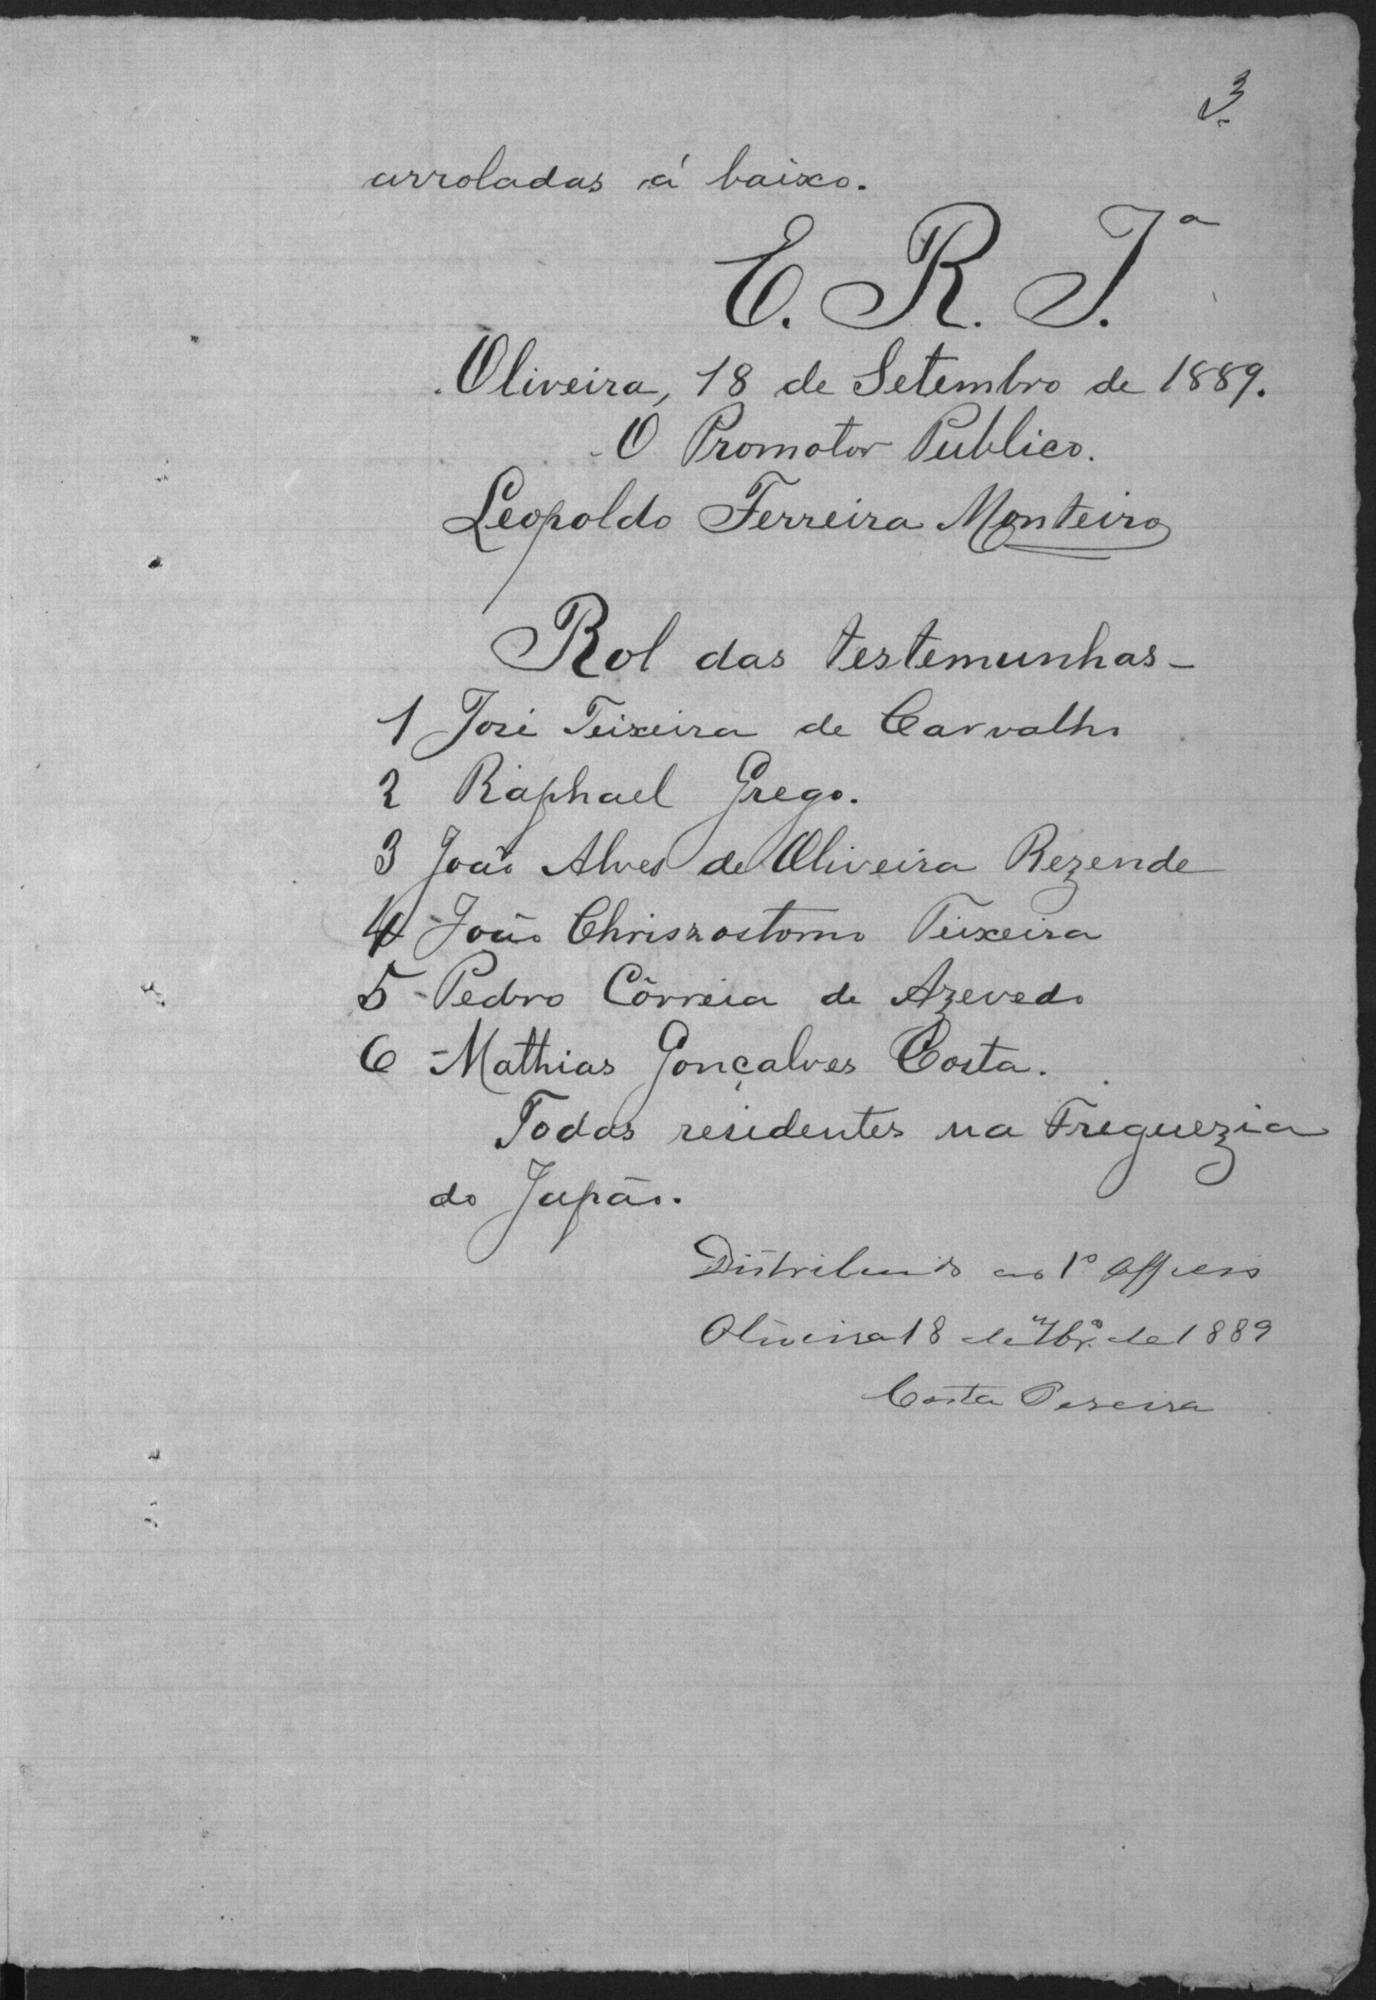 3
arroladas á baixo.
E. R. J.ª
Oliveira, 18 de Setembro de 1889.
O Promotor Publico.
Leopoldo Ferreira Monteiro
Rol das testemunhas-
1 José Teixeira de Carvalho
2 Raphael Grego.
3 João Alves de Oliveira Rezende
4 João Chriszostomo Teixeira
5 Pedro Côrreia de Azevedo
6 Mathias Gonçalves Costa.
Todas residentes na Freguezia
do Japão.
Distribuido ao 1º Officio
Oliveira 18 de 7brº de 1889
Costa Pereira